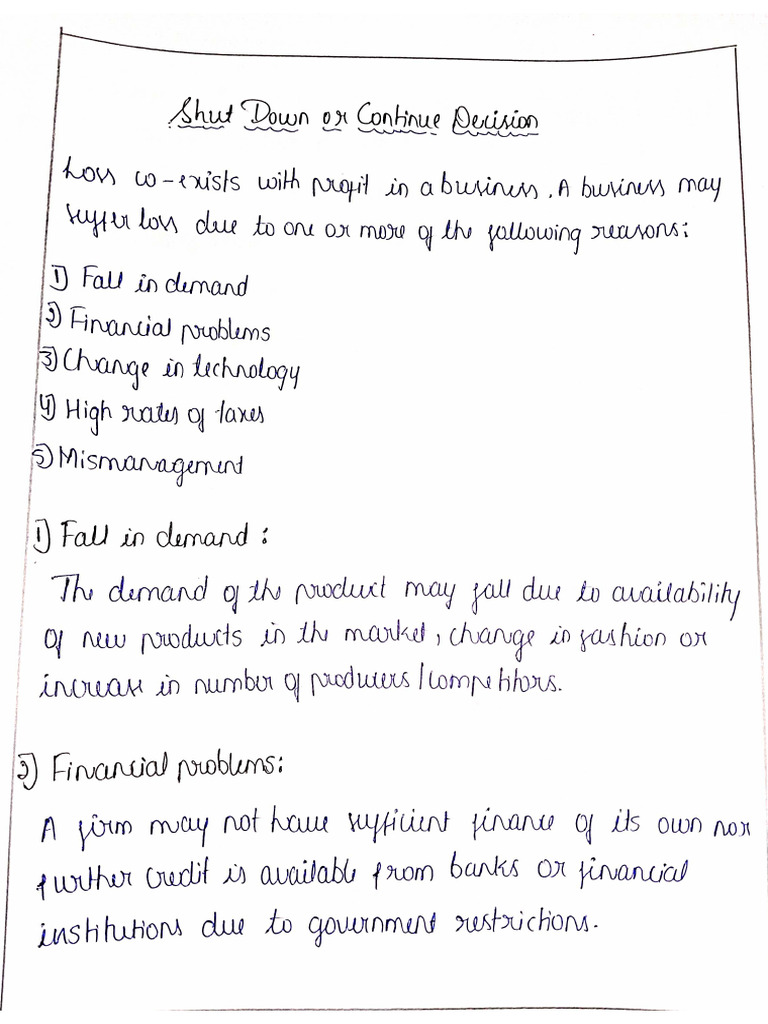 Shut Down or Continue Decision
Loss co-exists with profit in a business. A business may
suffer loss due to one or more of the following reasons:
1) Fall in demand
2) Financial problems
3) Change in technology
4) High rates of taxes
5) Mismanagement
1) Fall in demand :
The demand of the product may fall due to availability
of new products in the market, change in fashion or
increase in number of producers/competitors.
2) Financial problems:
A firm may not have sufficient finance of its own nor
further credit is available from banks or financial
institutions due to government restrictions.